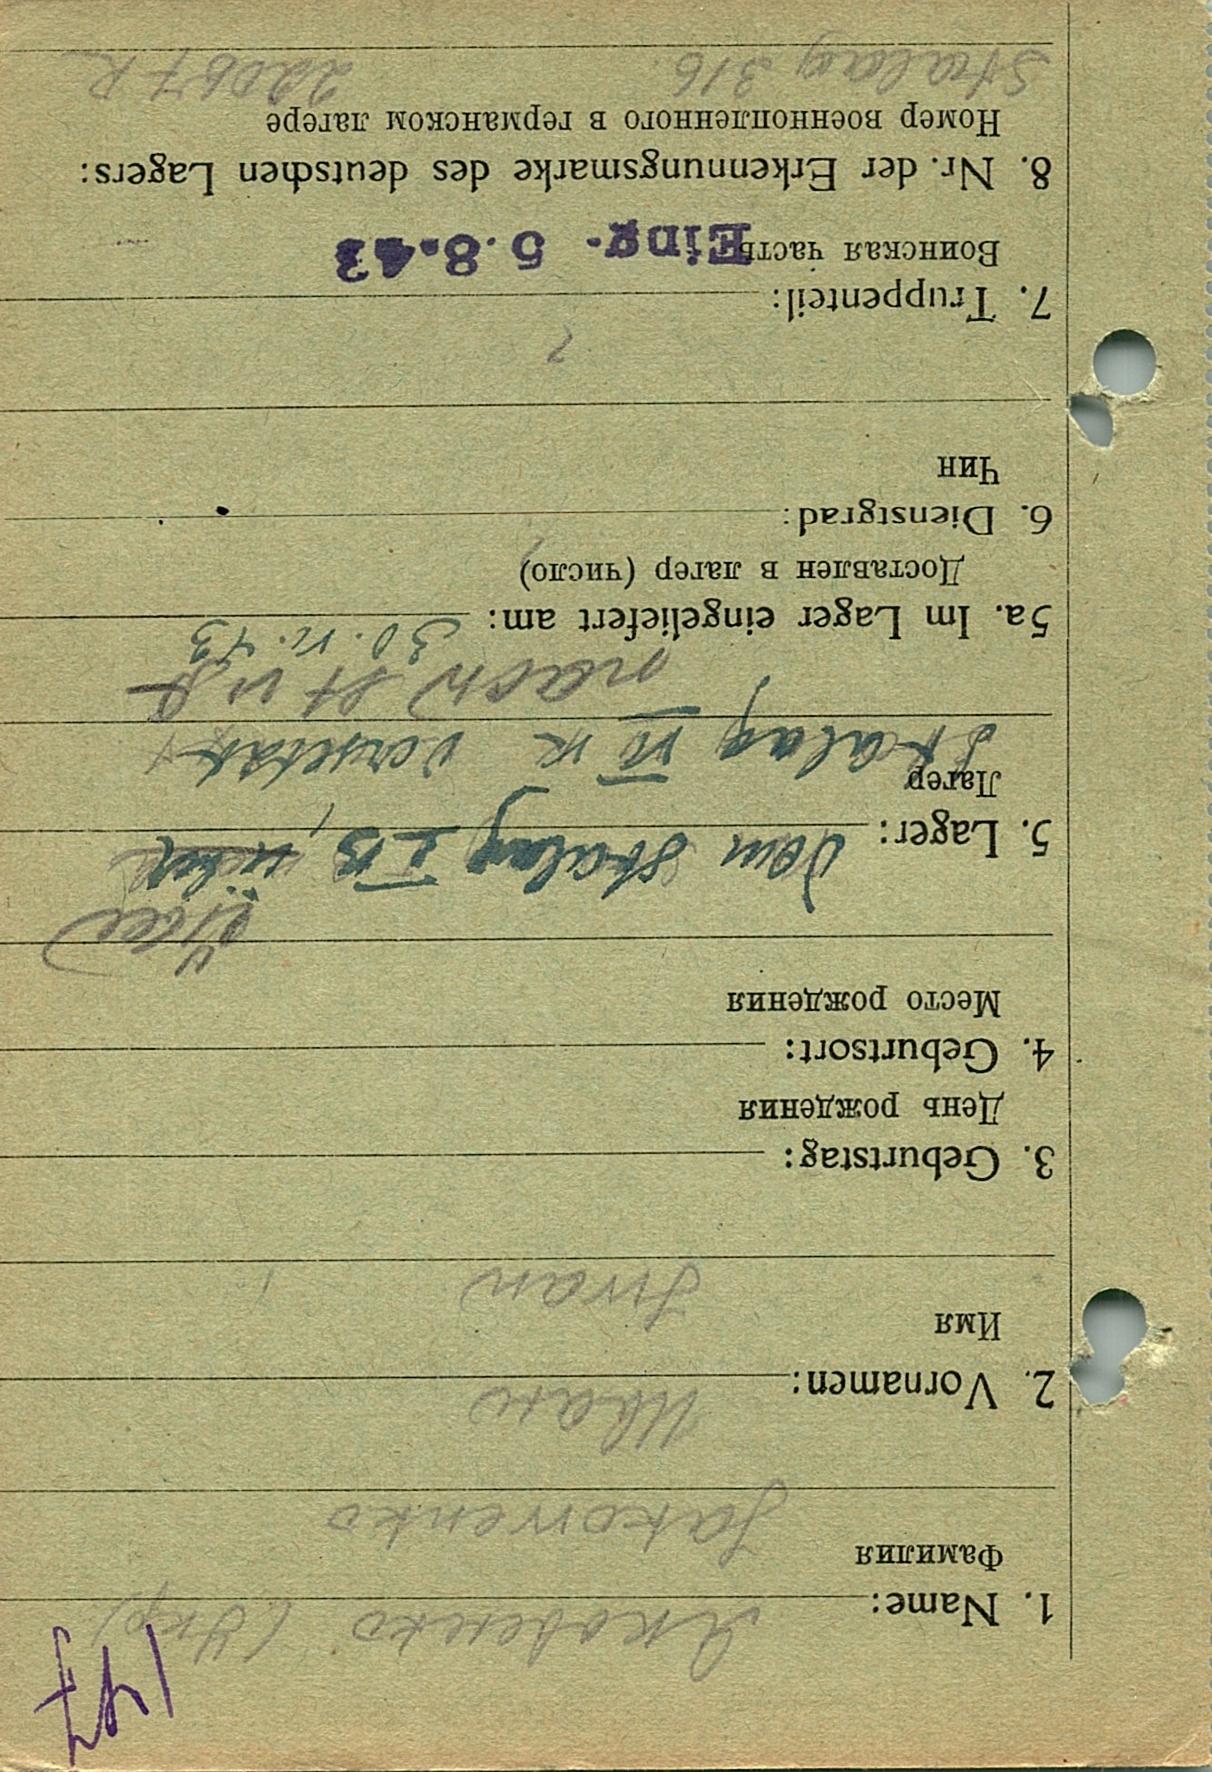 147
1. Name: Яковенко (Укр)
Фамилия
Jakowenko
2. Vornamen: Иван
Имя
Iwan
3. Geburtstag:
День рождения
4. Geburtsort:
Место рождения
5. Lager: Vom Stalag I B, über
Лагер
Stalag VI K versetzt
nach St VI A
5a. Im Lager eingeliefert am: 30. VI. 43
Доставлен в лагер (число)
6. Dienstgrad:
Чин
?
7. Truppenteil:
Воинская часть
Eing. 5.8.43
8. Nr. der Erkennungsmarke des deutschen Lagers:
Номер военнопленного в германском лагере
Stalag 316